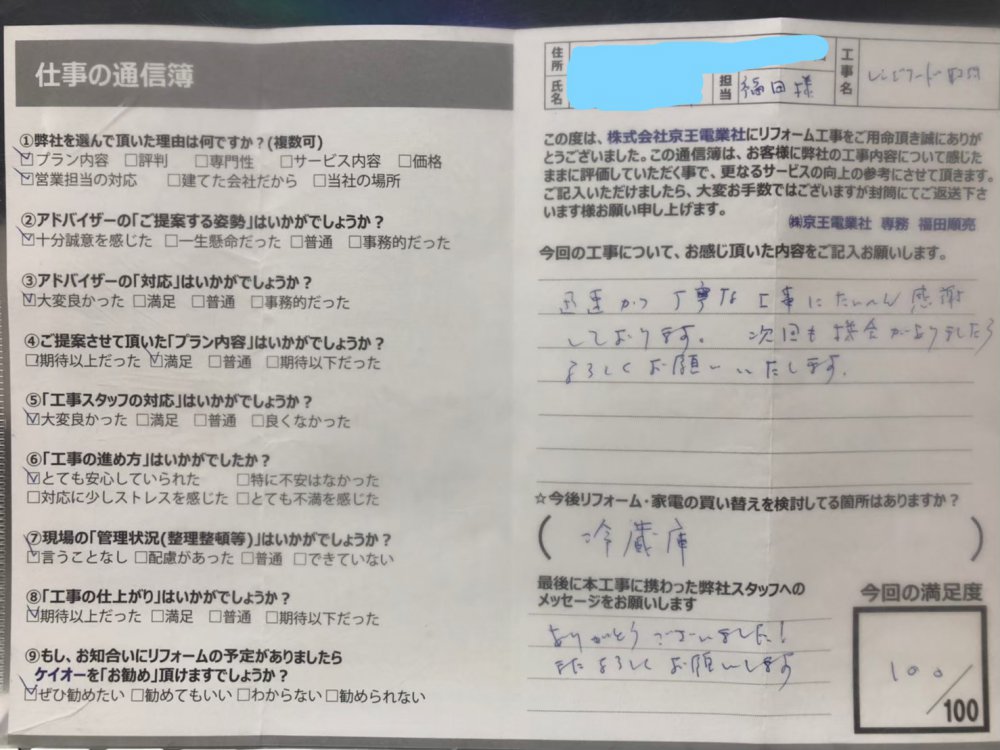 仕事の通信簿
①弊社を選んで頂いた理由は何ですか？(複数可)
☑プラン内容 □評判 □専門性 □サービス内容 □価格
☑営業担当の対応 □建てた会社だから □当社の場所
②アドバイザーの「ご提案する姿勢」はいかがでしょうか？
☑十分誠意を感じた □一生懸命だった □普通 □事務的だった
③アドバイザーの「対応」はいかがでしょうか？
☑大変良かった □満足 □普通 □事務的だった
④ご提案させて頂いた「プラン内容」はいかがでしょうか？
□期待以上だった ☑満足 □普通 □期待以下だった
⑤「工事スタッフの対応」はいかがでしょうか？
☑大変良かった □満足 □普通 □良くなかった
⑥「工事の進め方」はいかがでしたか？
☑とても安心していられた □特に不安はなかった
□対応に少しストレスを感じた □とても不満を感じた
⑦現場の「管理状況(整理整頓等)」はいかがでしょうか？
☑言うことなし □配慮があった □普通 □できていない
⑧「工事の仕上がり」はいかがでしょうか？
☑期待以上だった □満足 □普通 □期待以下だった
⑨もし、お知合いにリフォームの予定がありましたら
ケイオーを「お勧め」頂けますでしょうか？
☑ぜひ勧めたい □勧めてもいい □わからない □勧められない
住所
氏名
担当 福田様
工事名 レンジフード取替
この度は、株式会社京王電業社にリフォーム工事をご用命頂き誠にありが
とうございました。この通信簿は、お客様に弊社の工事内容について感じた
ままに評価していただく事で、更なるサービスの向上の参考にさせて頂きます。
ご記入いただけましたら、大変お手数ではございますが封筒にてご返送下さ
います様お願い申し上げます。
㈱京王電業社 専務 福田順亮
今回の工事について、お感じ頂いた内容をご記入お願いします。
迅速かつ丁寧な工事にたいへん感謝
しております。次回も機会がありましたら
よろしくお願いいたします。
☆今後リフォーム・家電の買い替えを検討してる箇所はありますか？
(冷蔵庫)
最後に本工事に携わった弊社スタッフへの
メッセージをお願いします
ありがとうございました！
またよろしくお願いします
今回の満足度
100/100